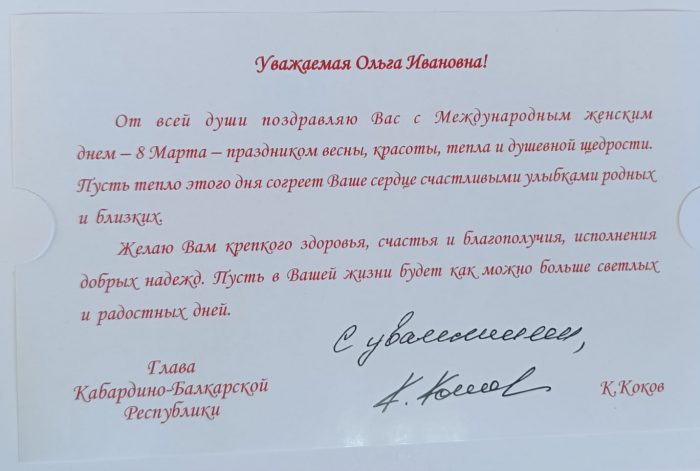 Уважаемая Ольга Ивановна!
От всей души поздравляю Вас с Международным женским
днем – 8 Марта – праздником весны, красоты, тепла и душевной щедрости.
Пусть тепло этого дня согреет Ваше сердце счастливыми улыбками родных
и близких.
Желаю Вам крепкого здоровья, счастья и благополучия, исполнения
добрых надежд. Пусть в Вашей жизни будет как можно больше светлых
и радостных дней.
С уважением,
Глава
Кабардино-Балкарской
Республики
К. Коков
К.Коков